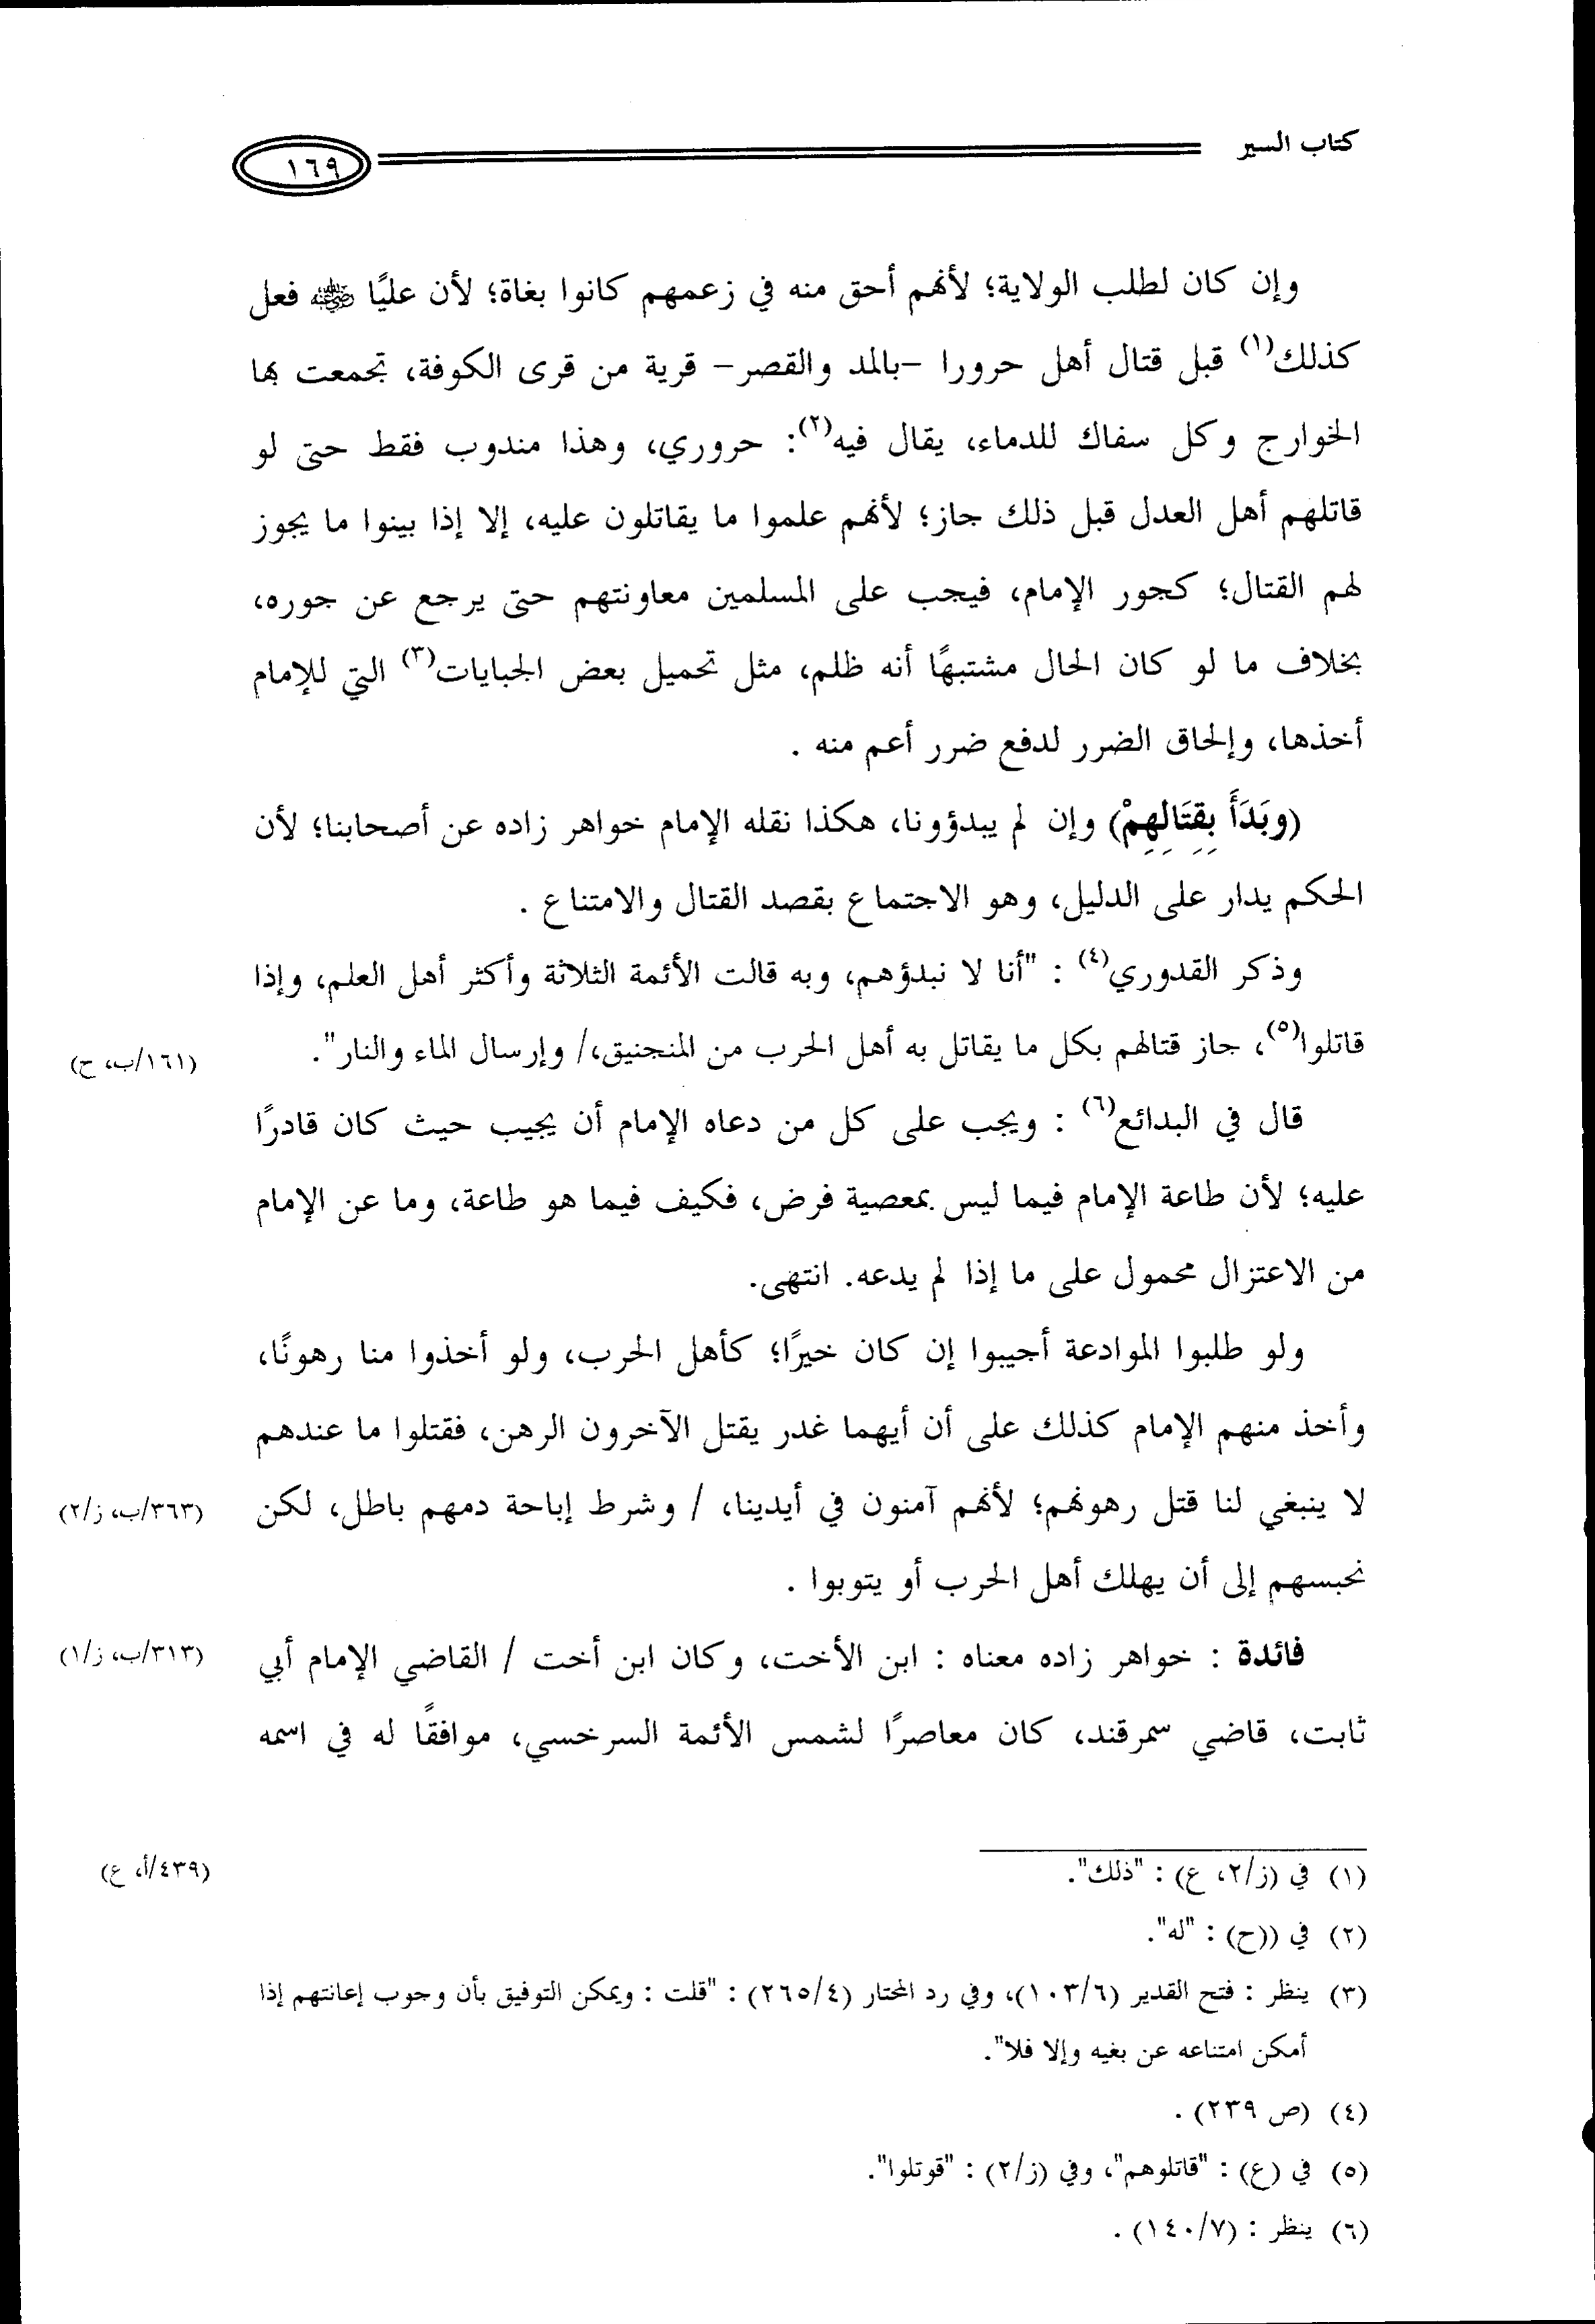 كتاب السير
١٦٩
وإن كان لطلب الولاية؛ لأنهم أحق منه في زعمهم كانوا بغاة؛ لأن عليًا رضي الله عنه فعل
كذلك(١) قبل قتال أهل حرورا -بالمد والقصر- قرية من قرى الكوفة، تجمعت بها
الخوارج وكل سفاك للدماء، يقال فيه(٢): حروري، وهذا مندوب فقط حتى لو
قاتلهم أهل العدل قبل ذلك جاز؛ لأنهم علموا ما يقاتلون عليه، إلا إذا بينوا ما يجوز
لهم القتال؛ كجور الإمام، فيجب على المسلمين معاونتهم حتى يرجع عن جوره،
بخلاف ما لو كان الحال مشتبهًا أنه ظلم، مثل تحميل بعض الجبايات(٣) التي للإمام
أخذها، وإلحاق الضرر لدفع ضرر أعم منه .
(وبَدَأَ بِقِتَالِهِمْ) وإن لم يبدؤونا، هكذا نقله الإمام خواهر زاده عن أصحابنا؛ لأن
الحكم يدار على الدليل، وهو الاجتماع بقصد القتال والامتناع .
وذكر القدوري(٤) : "أنا لا نبدؤهم، وبه قالت الأئمة الثلاثة وأكثر أهل العلم، وإذا
قاتلوا(٥)، جاز قتالهم بكل ما يقاتل به أهل الحرب من المنجنيق،/ وإرسال الماء والنار".
(١٦١/ب، ح)
قال في البدائع(٦) : ويجب على كل من دعاه الإمام أن يجيب حيث كان قادرًا
عليه؛ لأن طاعة الإمام فيما ليس بمعصية فرض، فكيف فيما هو طاعة، وما عن الإمام
من الاعتزال محمول على ما إذا لم يدعه. انتهى.
ولو طلبوا الموادعة أجيبوا إن كان خيرًا؛ كأهل الحرب، ولو أخذوا منا رهونًا،
وأخذ منهم الإمام كذلك على أن أيهما غدر يقتل الآخرون الرهن، فقتلوا ما عندهم
لا ينبغي لنا قتل رهونهم؛ لأنهم آمنون في أيدينا، / وشرط إباحة دمهم باطل، لكن
(٣٦٣/ب، ز/٢)
نحبسهم إلى أن يهلك أهل الحرب أو يتوبوا .
فائدة : خواهر زاده معناه : ابن الأخت، وكان ابن أخت / القاضي الإمام أبي
(٣١٣/ب، ز/١)
ثابت، قاضي سمرقند، كان معاصرًا لشمس الأئمة السرخسي، موافقًا له في اسمه
(٤٣٩/أ، ع)
(١) في (ز/٢، ع) : "ذلك".
(٢) في ((ح) : "له".
(٣) ينظر : فتح القدير (١٠٣/٦)، وفي رد المحتار (٢٦٥/٤) : "قلت : ويمكن التوفيق بأن وجوب إعانتهم إذا
أمكن امتناعه عن بغيه وإلا فلا".
(٤) (ص ٢٣٩) .
(٥) في (ع) : "قاتلوهم"، وفي (ز/٢) : "قوتلوا".
(٦) ينظر : (١٤٠/٧) .